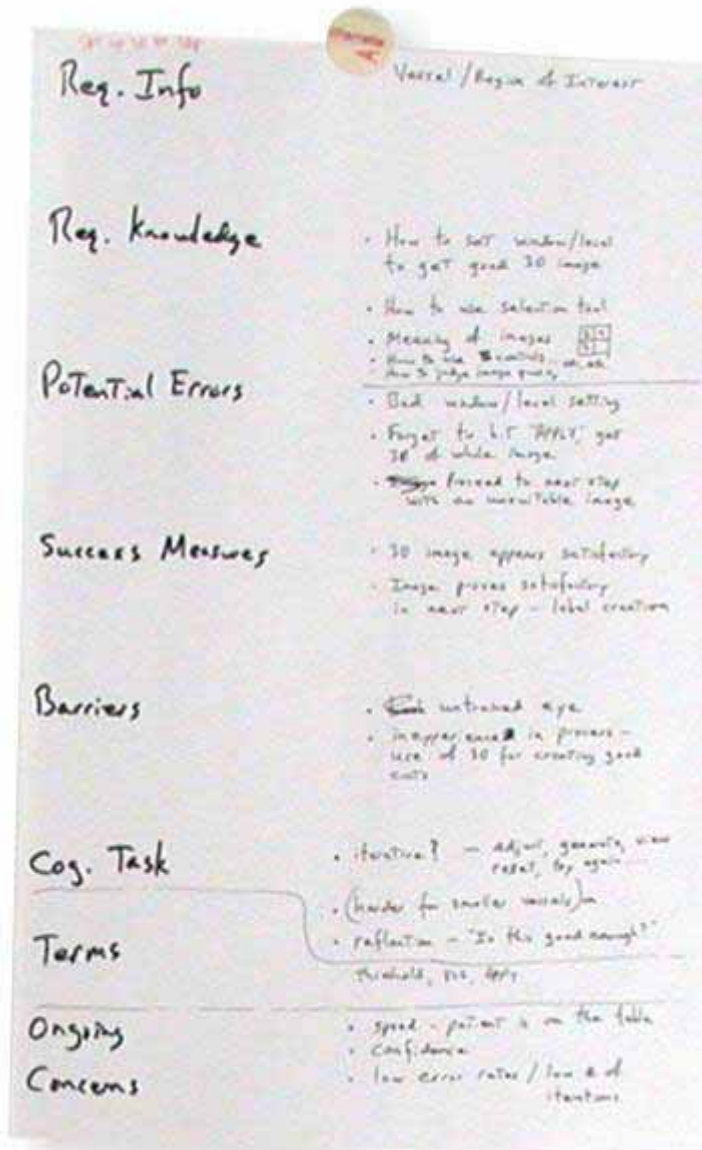 Req. Info
Vessel / Region of Interest
Req. Knowledge
• How to set window/level
to get good 3D image
• How to use selection tool
• Meaning of images
• How to use controls
• How to judge image quality
Potential Errors
• Bad window/level setting
• Forget to hit "APPLY," get
3D of whole image
• Proceed to next step
with an unsuitable image
Success Measures
• 3D image appears satisfactory
• Image proves satisfactory
in next step – label creation
Barriers
• untrained eye
• inexperience in process –
use of 3D for creating good
cuts
Cog. Task
• iterative? – adjust, generate, view
reset, try again...
• (harder for smaller vessels)
• reflection – "Is this good enough?"
Terms
threshold, apply
Ongoing
Concerns
• speed – patient is on the table
• confidence
• low error rates / low # of
iterations